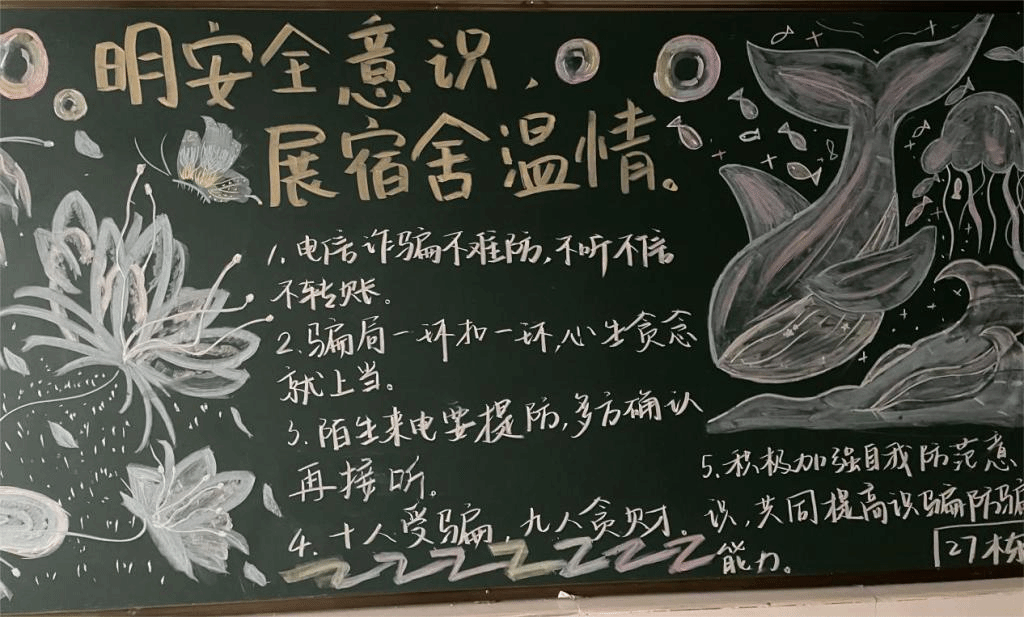 明安全意识,
展宿舍温情。
1.电信诈骗不难防,不听不信
不转账。
2.骗局一环扣一环,心生贪念
就上当。
3.陌生来电要提防,多方确认
再接听。
4.十人受骗,九人贪财.
5.积极加强自我防范意
识,共同提高识骗防骗
能力。
27栋